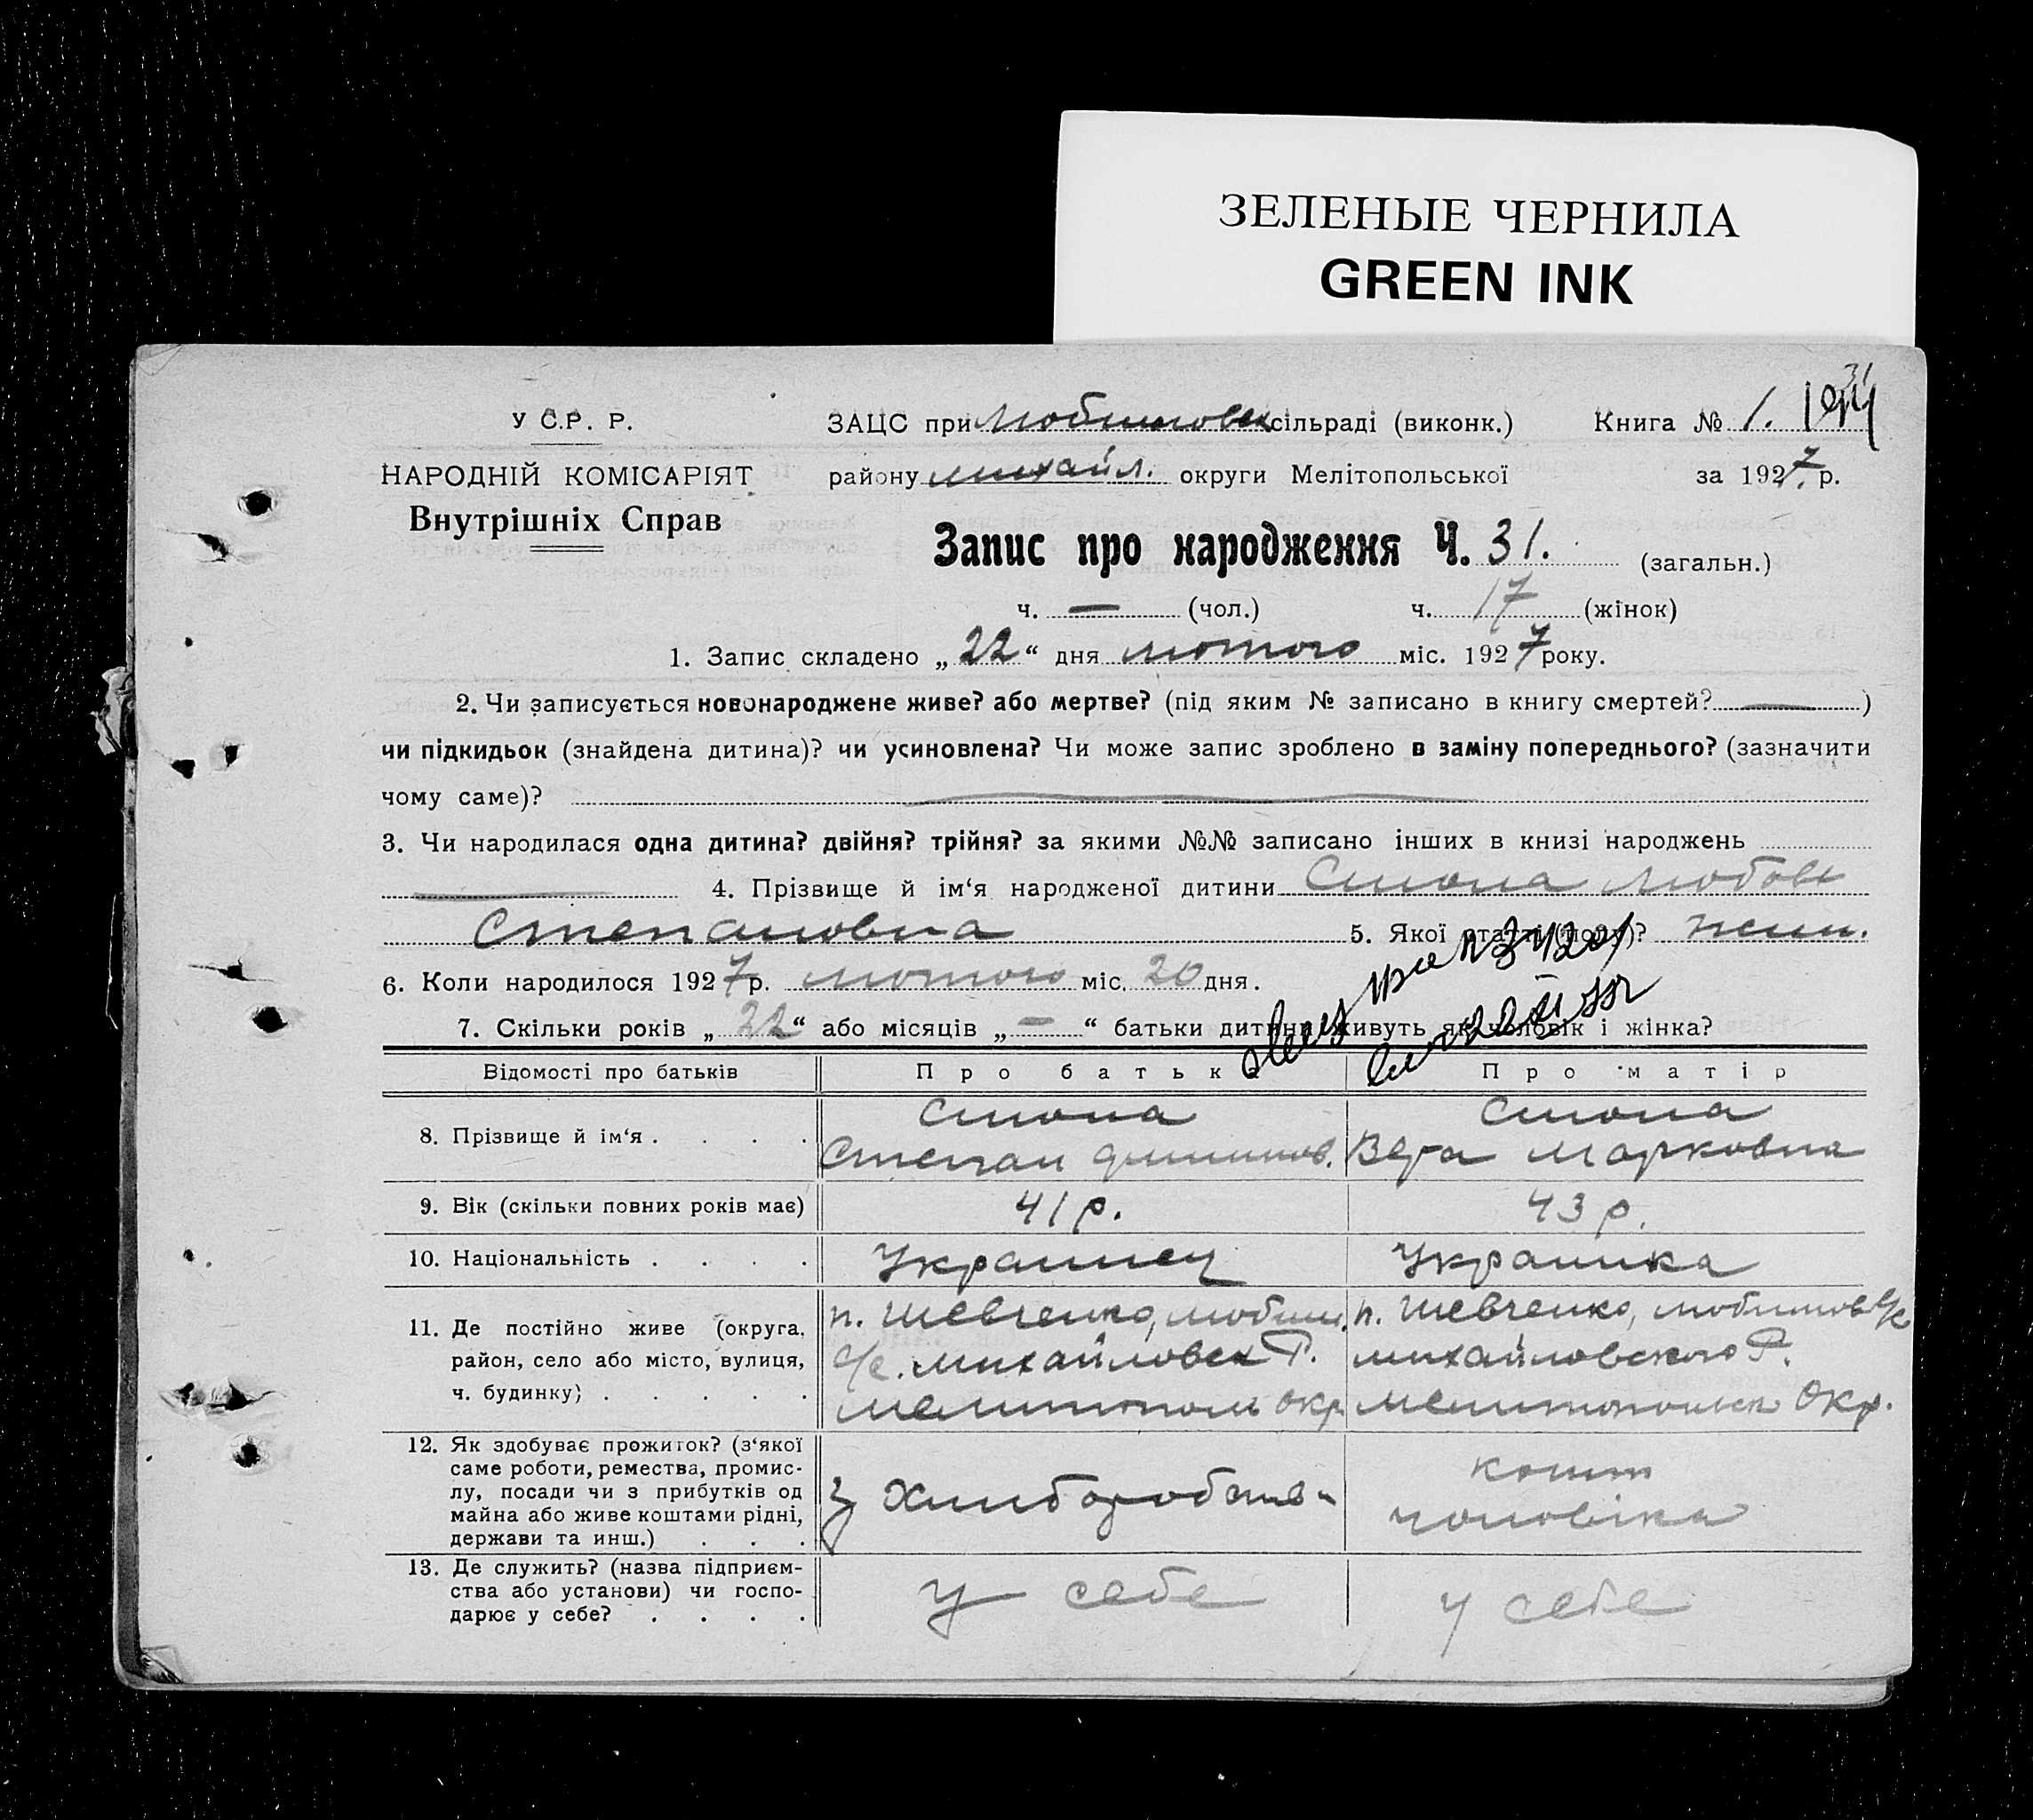 ЗЕЛЕНЫЕ ЧЕРНИЛА
GREEN INK
У С.Р. Р.
НАРОДНІЙ КОМІСАРІЯТ
Внутрішніх Справ
ЗАЦС при Любимовск сільраді (виконк.) Книга № 1.
району михайл. округи Мелітопольської за 1927 р.
Запис про народження Ч. 31. (загальн.)
ч. — (чол.) ч. 17 (жінок)
1. Запис складено „22“ дня лютого міс. 1927 року.
2. Чи записується новонароджене живе? або мертве? (під яким № записано в книгу смертей? — )
чи підкидьок (знайдена дитина)? чи усиновлена? Чи може запис зроблено в заміну попереднього? (зазначити
чому саме)?
3. Чи народилася одна дитина? двійня? трійня? за якими №№ записано інших в книзі народжень
4. Прізвище й ім‘я народженої дитини Любов
Степановна 5. Якої статті (полу)?
6. Коли народилося 1927 р. лютого міс. 20 дня.
7. Скільки років „22“ або місяців „—“ батьки дитини живуть як чоловік і жінка?
Відомості про батьків Про батька Про матір
8. Прізвище й ім‘я . . . .
Степан Вера Марковна
9. Вік (скільки повних років має) 41 р. 43 р.
10. Національність . . . . Украинец Украинка
11. Де постійно живе (округа, район, село або місто, вулиця, ч. будинку) . . . . .
п. Шевченко, любим. п. Шевченко, любимов с/р
с/р. михайловск Р. михайловского Р.
мелитополь окр мелитопольск Окр.
12. Як здобуває прожиток? (з‘якої
саме роботи, ремества, промис-
лу, посади чи з прибутків од
майна або живе коштами рідні,
держави та инш.) . . .
з Хлиборобства
кошт
чоловіка
13. Де служить? (назва підприєм-
ства або установи) чи госпо-
дарює у себе? . . . .
у себе у себе